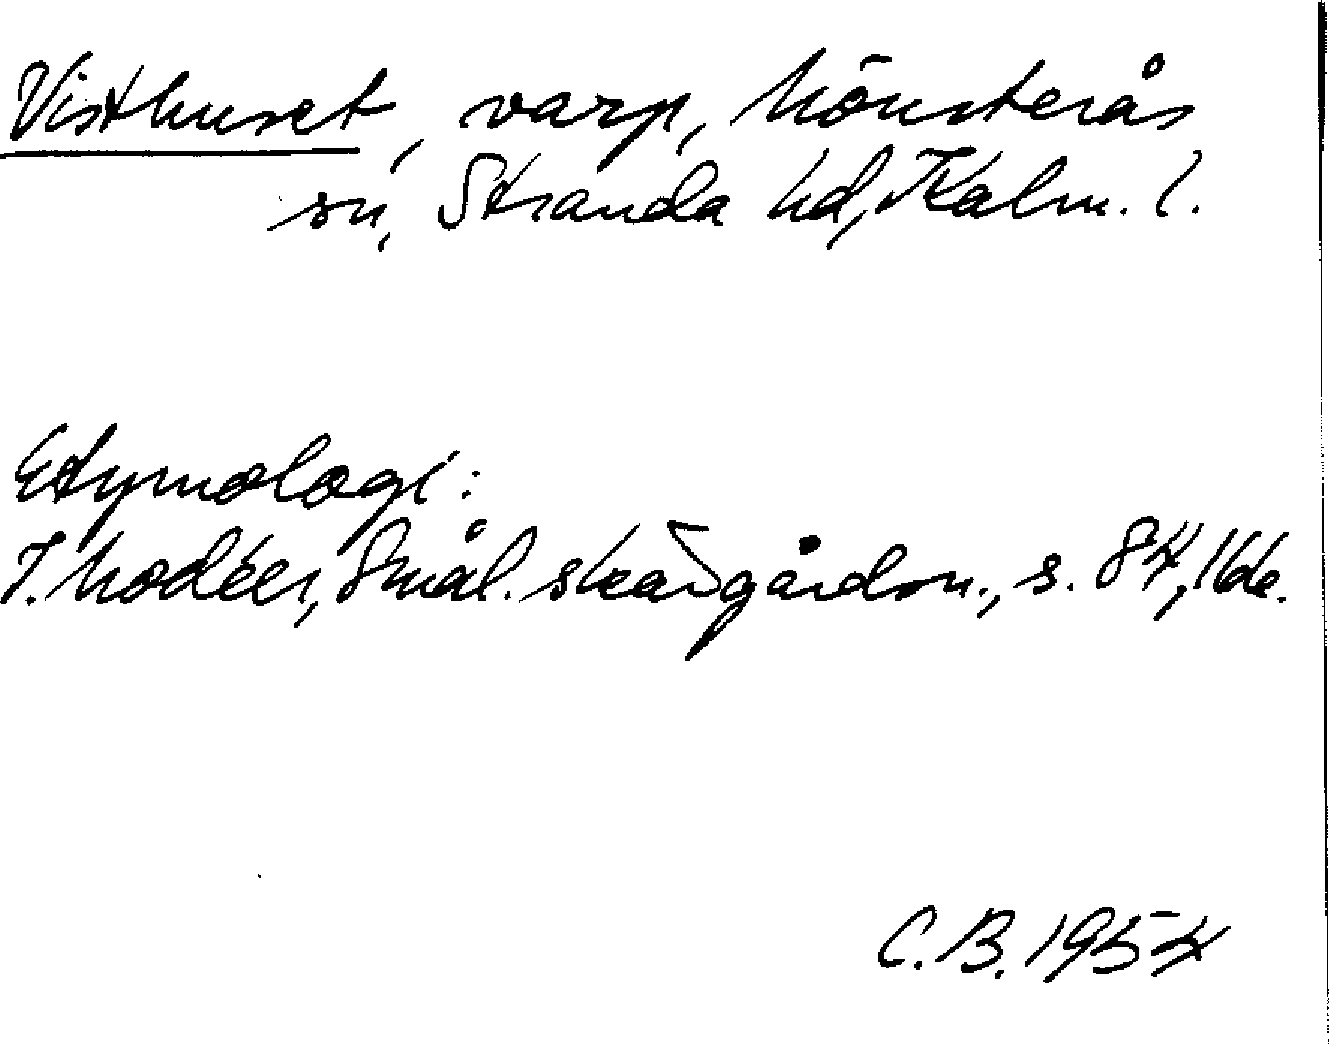 Visthuset, varp, Mönsterås
sn, Stranda hd, Kalm. l.
Etymologi:
I. Modéer, Smål. skärgårdsn., s. 84, 166.
C.B. 1954